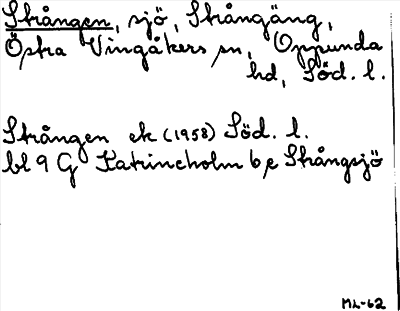 Strången, sjö, Strångäng,
Östra Vingåkers sn, Oppunda
hd, Söd. l.
Strången ek (1958) Söd. l.
bl 9 G Katrineholm b, e Strångsjö
ML-62